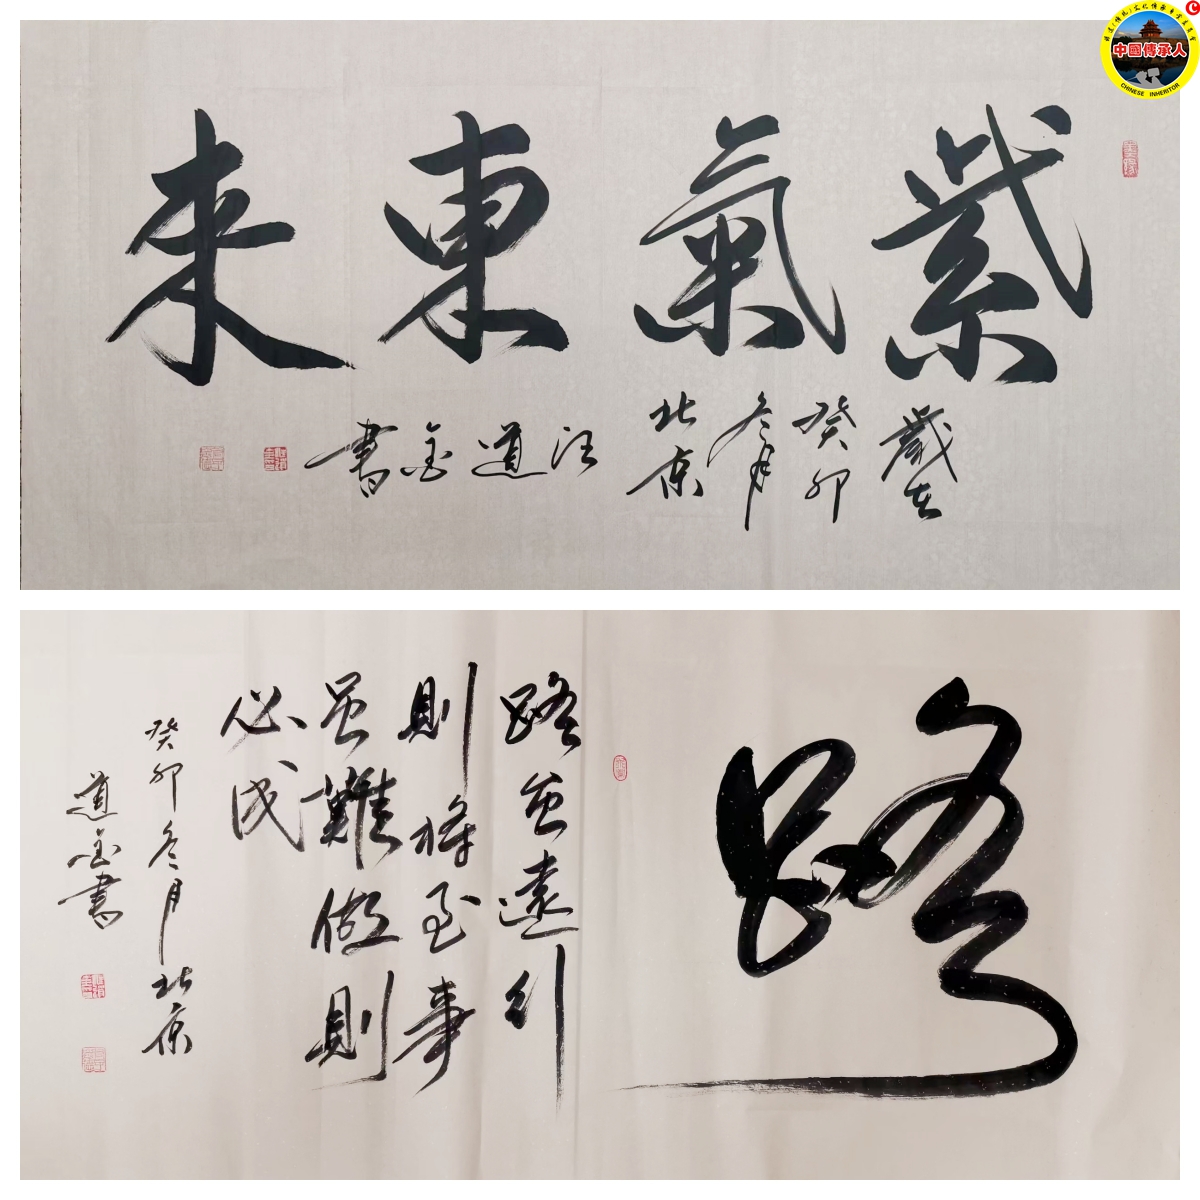 中國傳承人
CHINESE INHERITOR
紫氣東來
歲在
癸卯
冬月
北京
汪道金書
路
路虽遠行
則將至事
虽難做則
必成
癸卯冬月北京
道金書